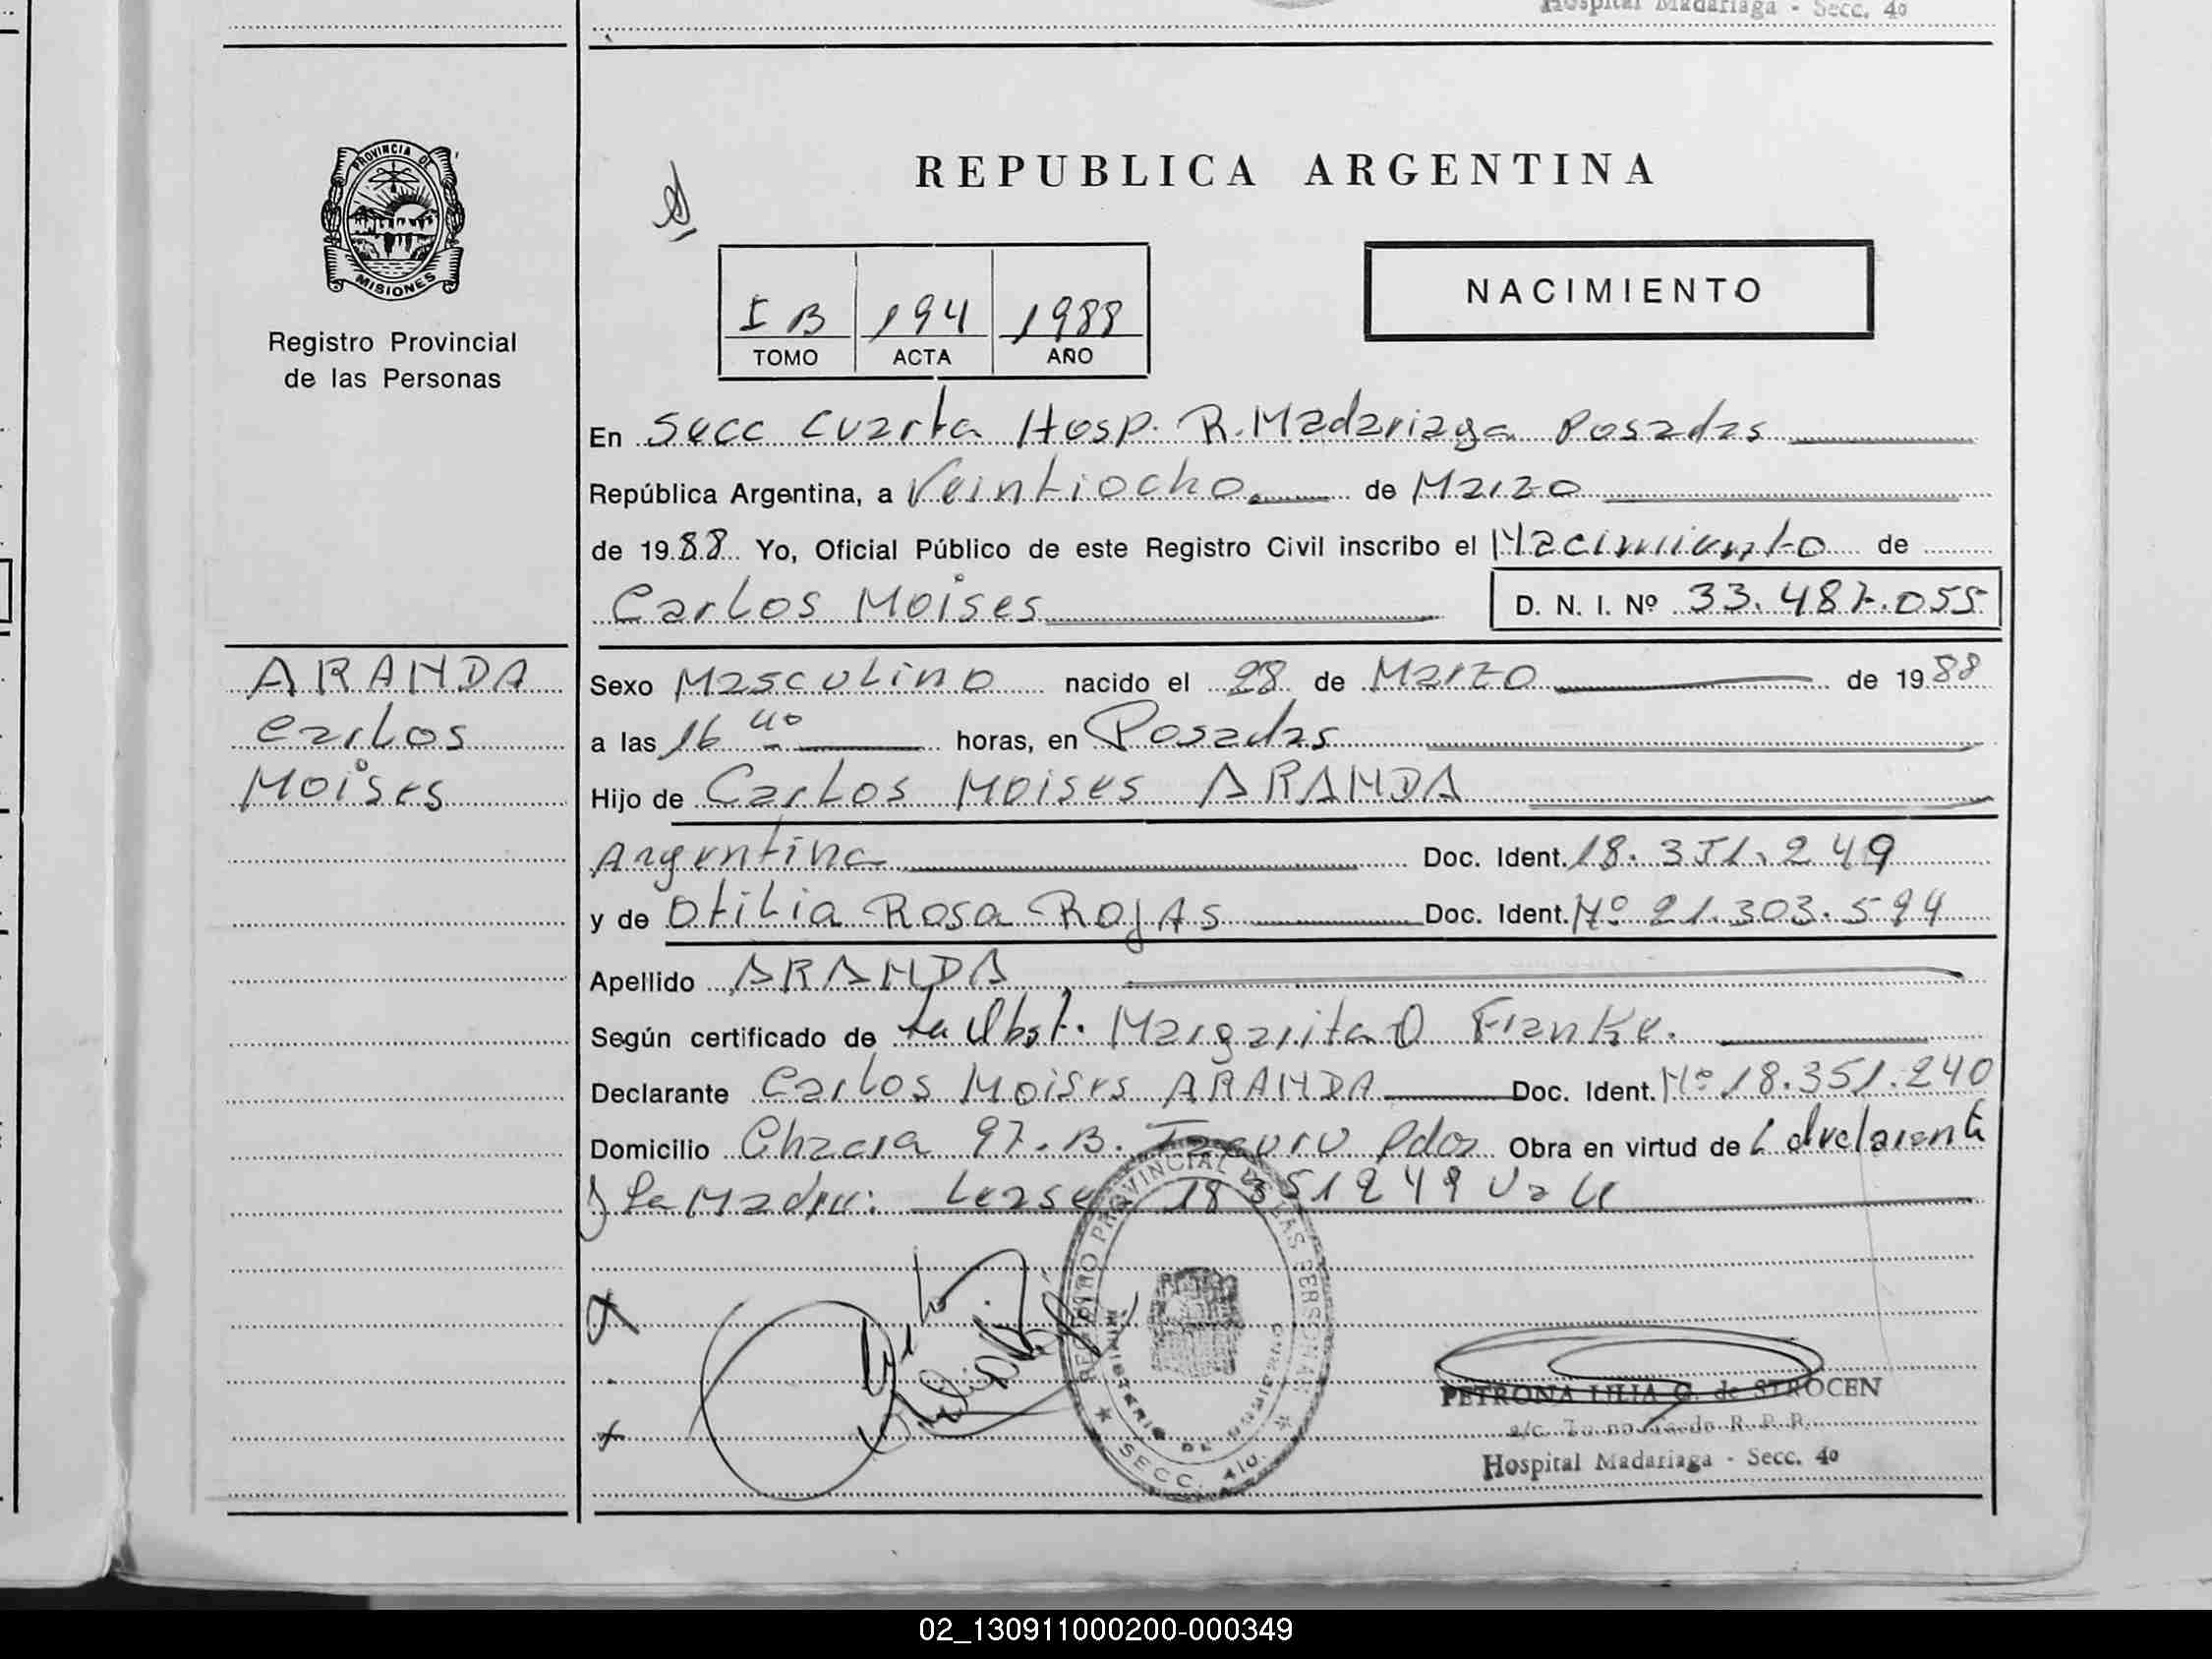 Hospital Madariaga - Secc. 4º
PROVINCIA DE
MISIONES
Registro Provincial
de las Personas
REPUBLICA ARGENTINA
NACIMIENTO
I B 194 1988
TOMO ACTA AÑO
En Secc Cuarta Hosp. R. Madariaga Posadas
República Argentina, a Veintiocho de Marzo
de 1988 Yo, Oficial Público de este Registro Civil inscribo el Nacimiento de
Carlos Moises D. N. I. Nº 33.487.055
ARANDA
Carlos
Moises
Sexo Masculino nacido el 28 de Marzo de 1988
a las 16 40 horas, en Posadas
Hijo de Carlos Moises ARANDA
Argentina Doc. Ident. 18.351.249
y de Otilia Rosa Rojas Doc. Ident. Nº 21.303.594
Apellido ARANDA
Según certificado de la Obst. Margarita O Franke.
Declarante Carlos Moises ARANDA Doc. Ident. Nº 18.351.240
Domicilio Chacra 97. B. Pdas Obra en virtud de declarante
y la Madre: Lease 18351249 Vale
REGISTRO PROVINCIAL DE LAS PERSONAS
MINISTERIO DE GOBIERNO
SECC. 4ta.
PETRONA LILIA G. de STROCEN
a/c. R. P. P.
Hospital Madariaga - Secc. 4º
02_130911000200-000349